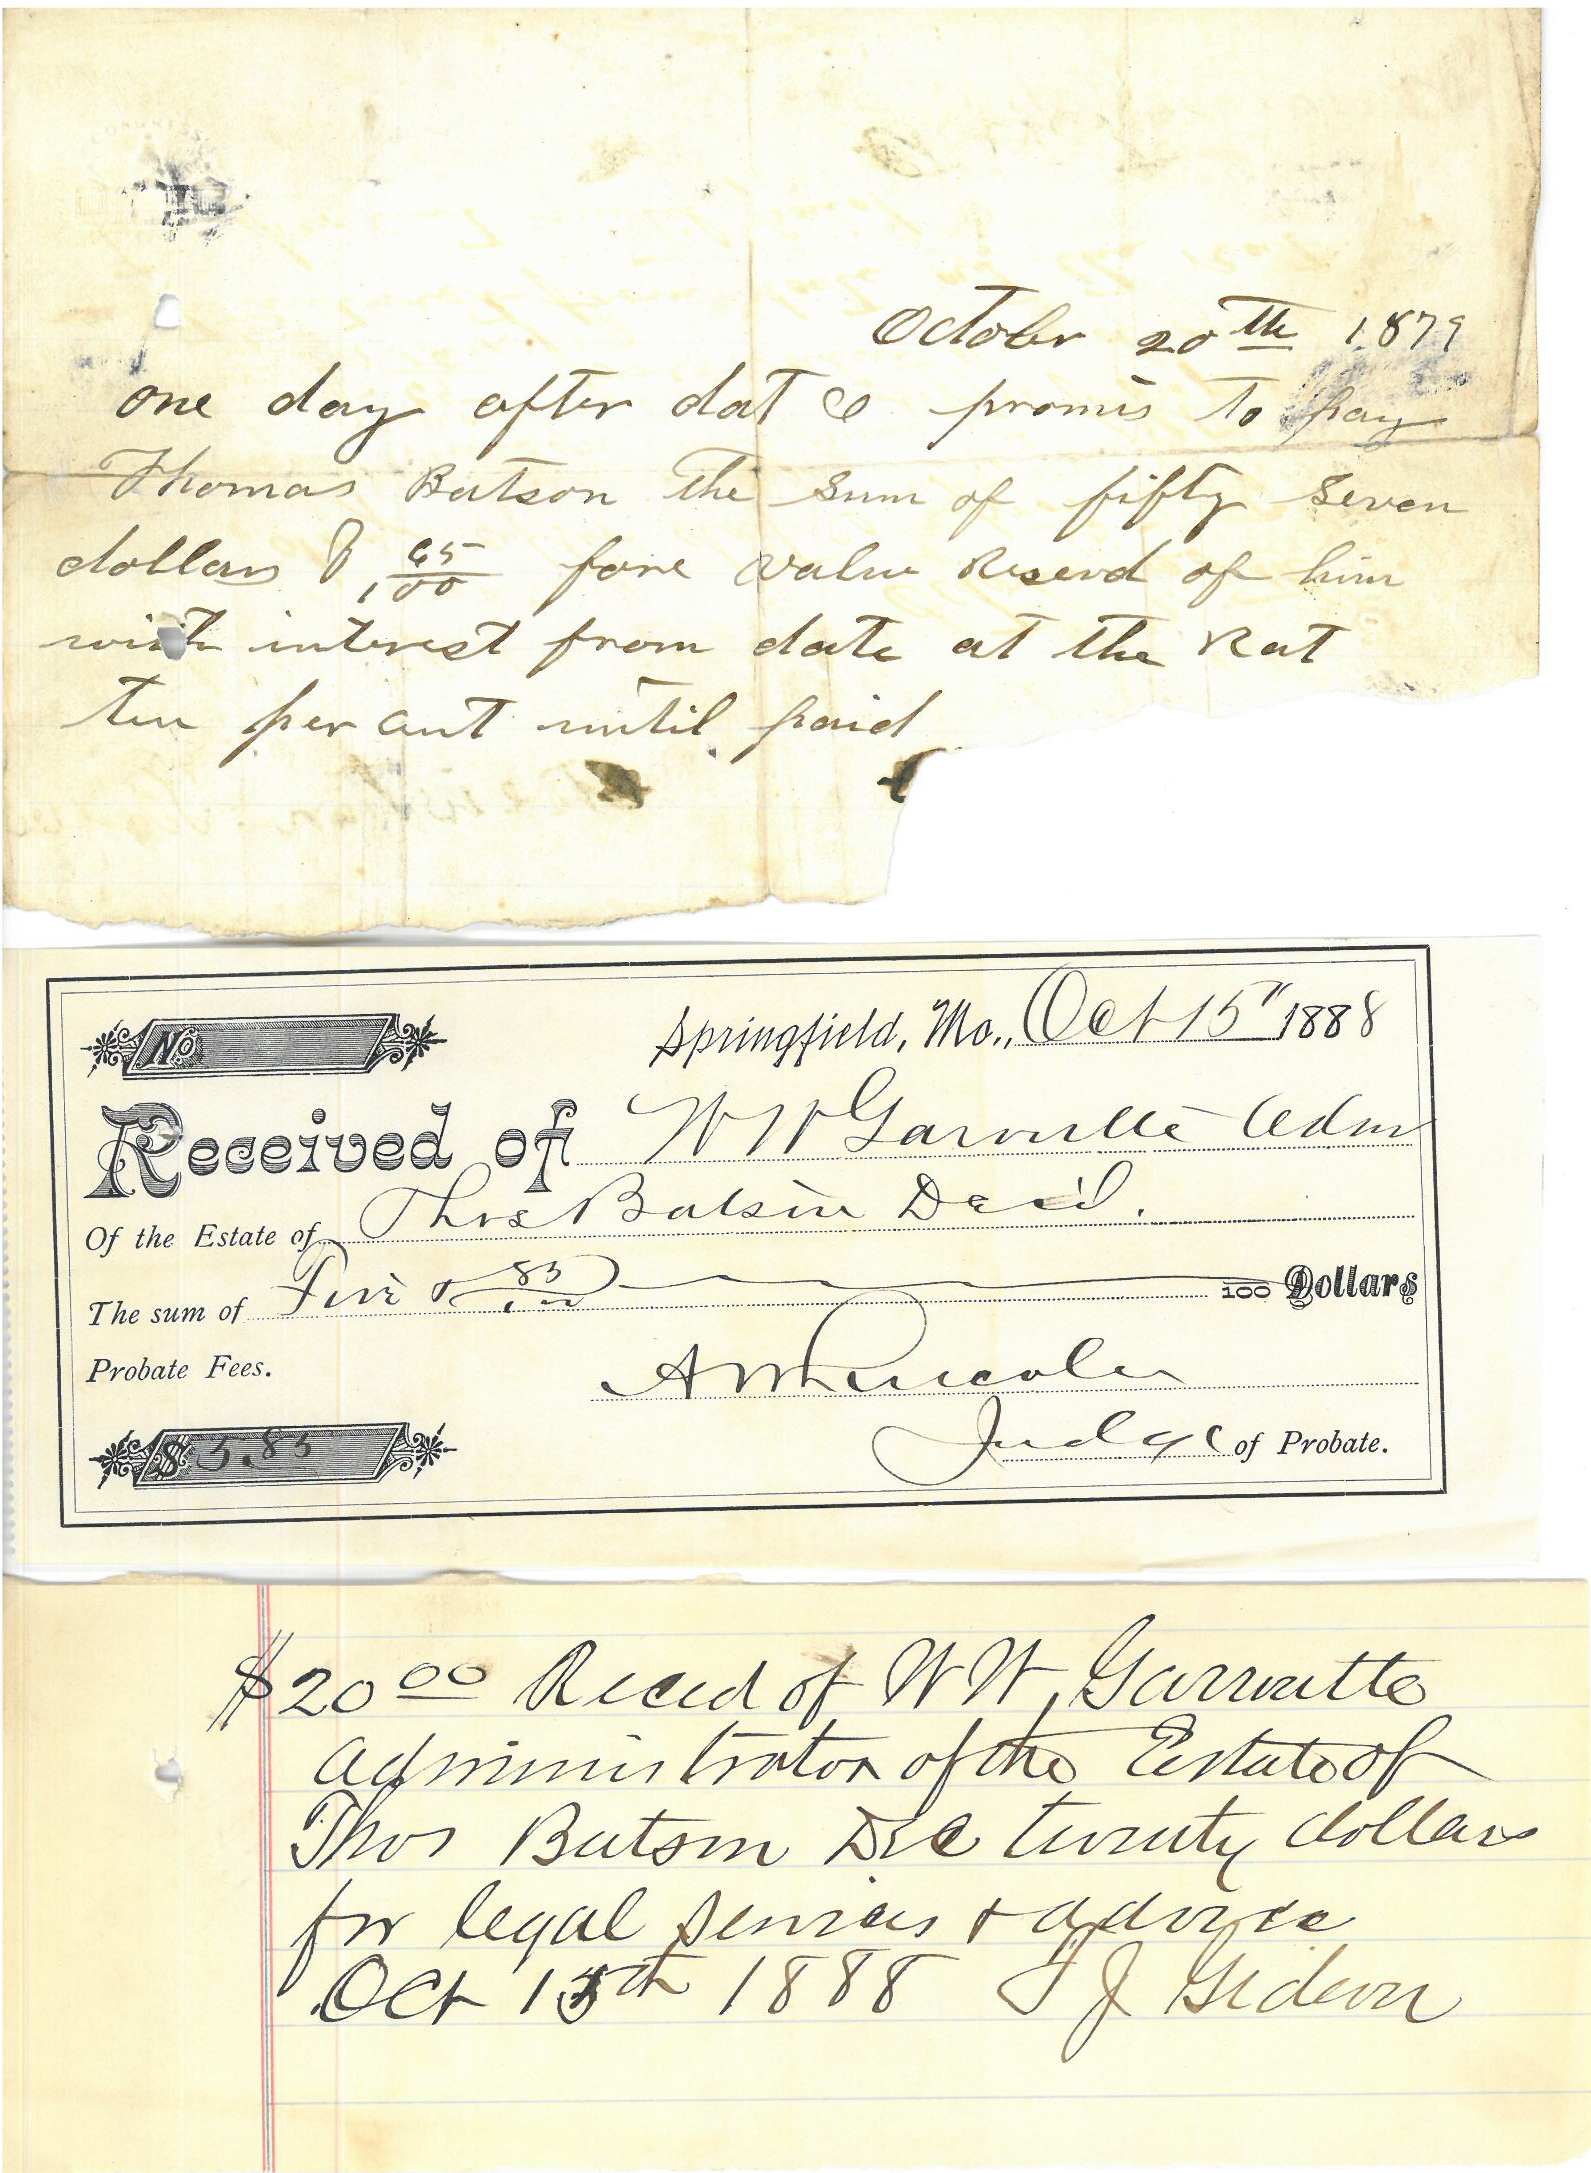 October 20th 1879
one day after dat I promis to pay
Thomas Batson the sum of fifty seven
dollars & 65/100 fore value Reserd of him
with interest from date at the Rat
ten per cent until paid
No.
Springfield, Mo., Oct 15" 1888
Received of W W Garroutte Adm
Of the Estate of Thos Batson Dec'd.
The sum of Five & 83/100 100 Dollars
Probate Fees.
Judge of Probate.
$ 5.83
$20 00 Recd of W W Garroutte
administrator of the Estate of
Thos Batson Dec twenty dollars
for legal services & advice
Oct 15th 1888 T J Gideon